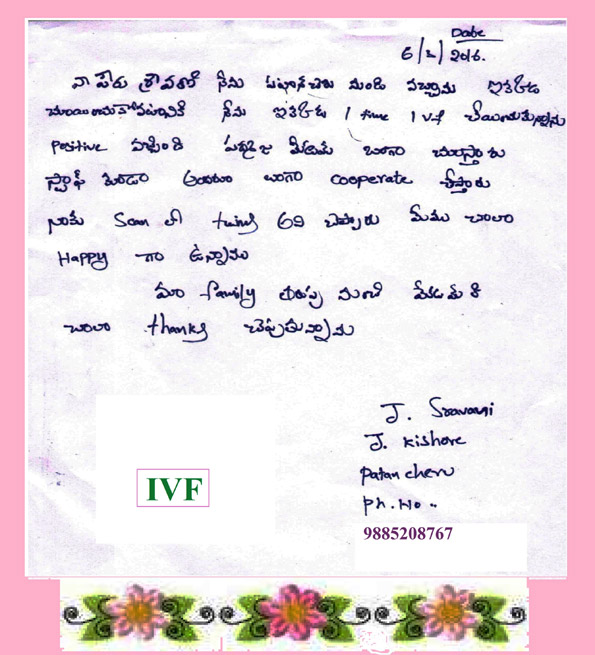 Date
6/2/2016.
నా పేరు శ్రావణి నేను పటాన్‌చెరు నుండి వచ్చాను
నేను 1 time IVF చేయించుకున్నాను
Positive వచ్చింది మేడమ్ బాగా చూస్తారు
స్టాఫ్ కూడా అందరూ బాగా cooperate చేస్తారు
నాకు Scan లో twins అని చెప్పారు మేము చాలా
Happy గా ఉన్నాము
మా family తరుపు నుంచి మేడమ్ కి
చాలా thanks చెప్పుతున్నాను
J. Sravani
J. Kishore
Patancheru
Ph. No..
IVF
9885208767